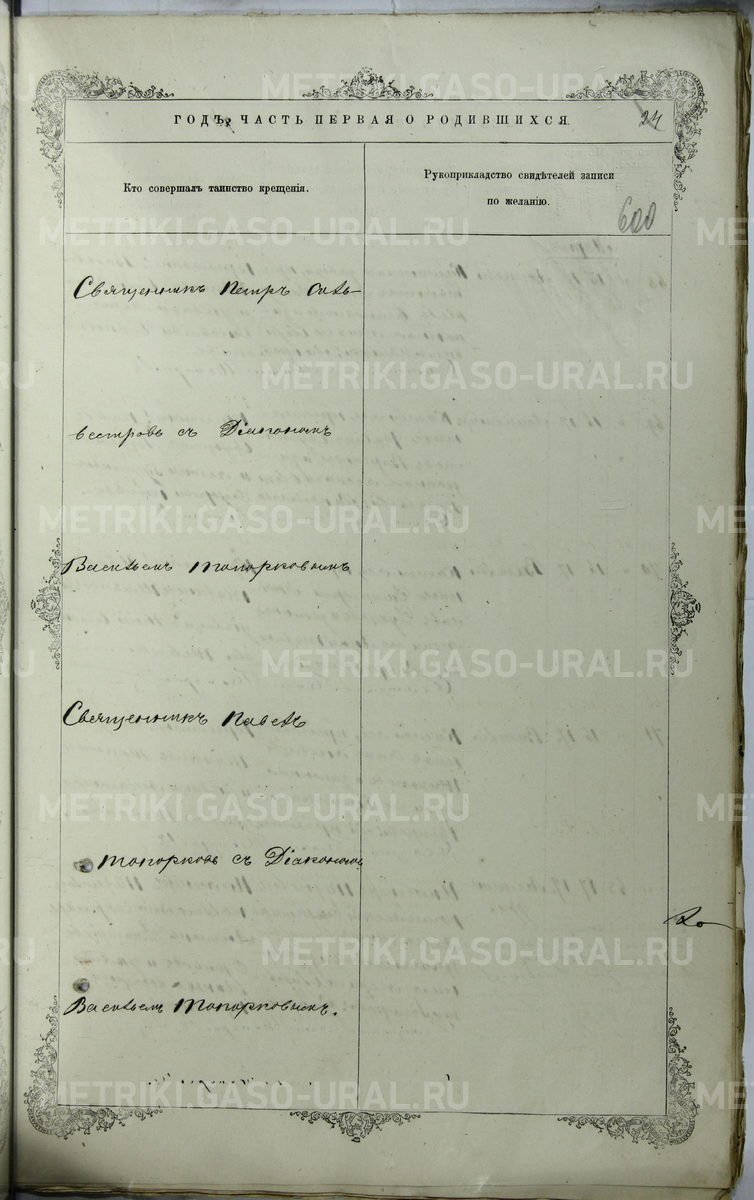 ГОДЪ, ЧАСТЬ ПЕРВАЯ О РОДИВШИХСЯ.
24
Кто совершалъ таинство крещенія.
Рукоприкладство свидѣтелей записи
по желанію.
600
Священникъ Петръ Силь-
вестровъ съ Діакономъ
Васильемъ Топорковымъ
Священникъ Павелъ
Топорковъ съ Діакономъ
Васильемъ Топорковымъ.
METRIKI.GASO-URAL.RU